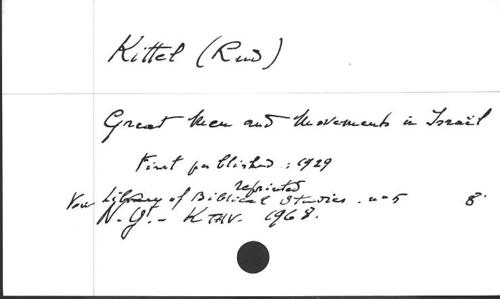 Kittel (Rud)
Great Men and Movements in Israël
First published : 1929
reprinted
Library of Biblical Studies. no 5 8°
N.Y. - KTAV. 1968.